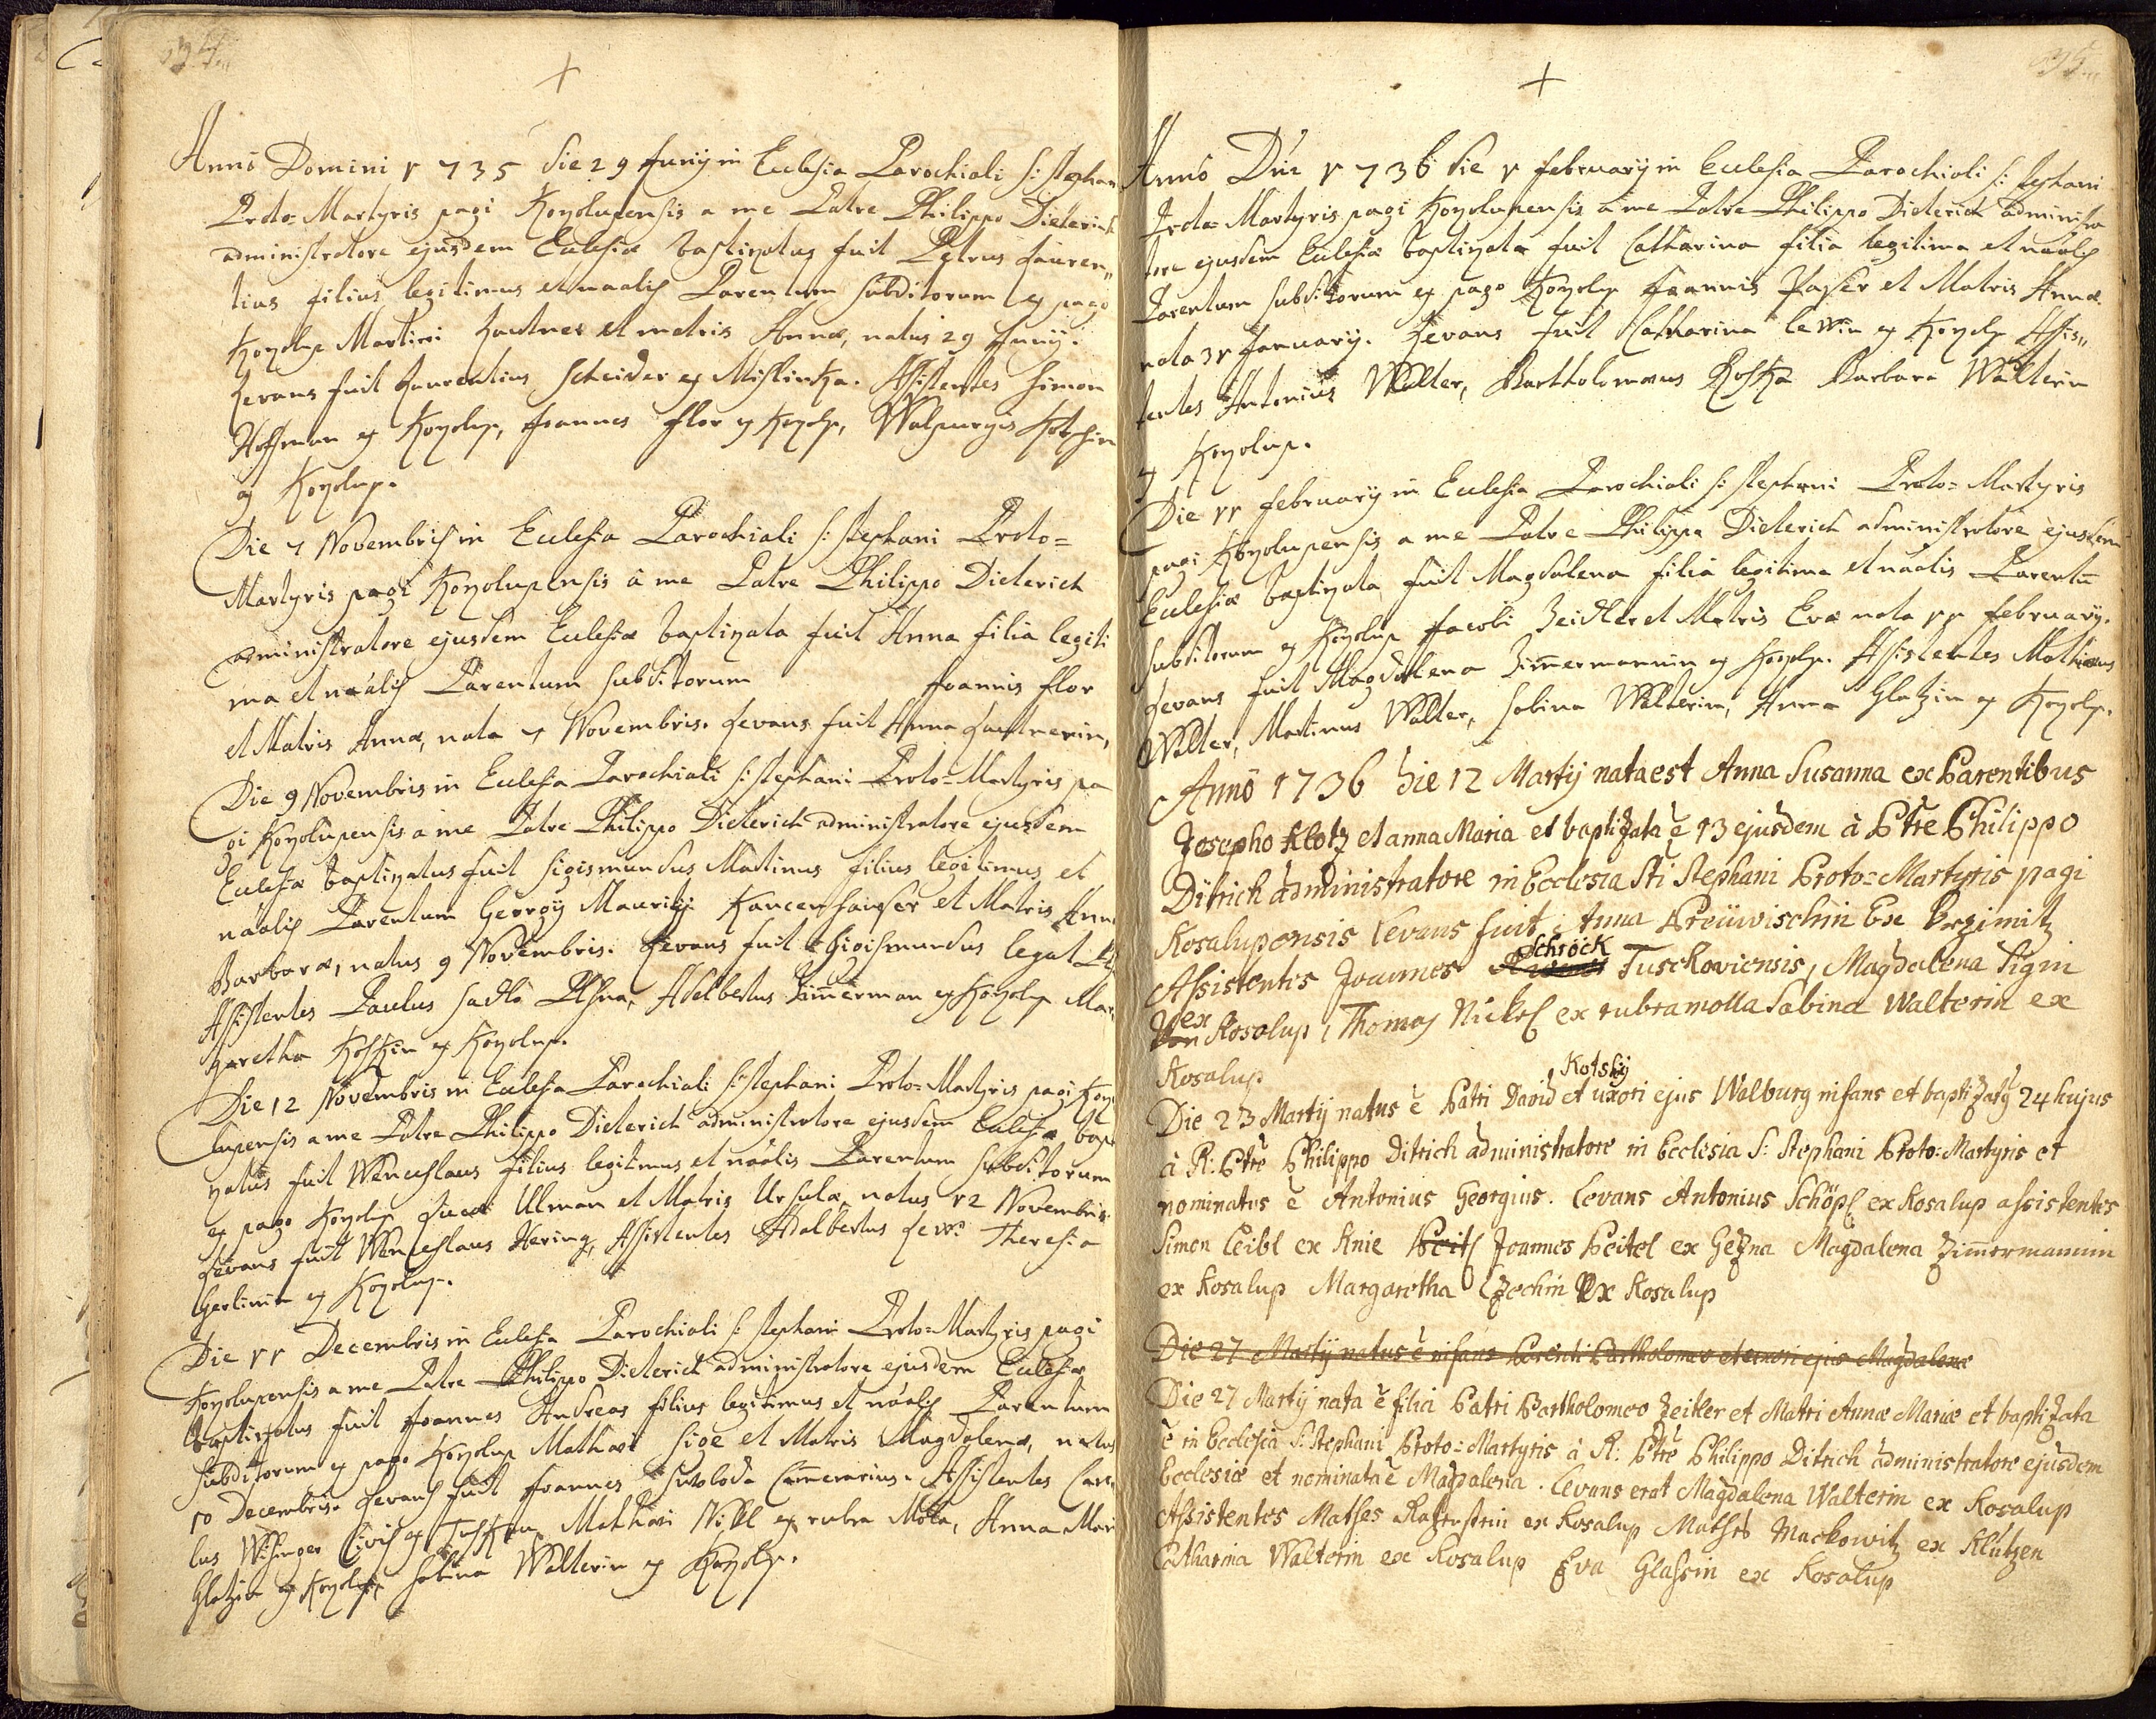 34
Anno Domini 1735 die 29 Junij in Ecclesia Parochiali S: Stephani
Proto-Martyris pagi Kozolupensis a me Patre Philippo Dieterich
administratore ejusdem Ecclesiæ baptizatus fuit Petrus Lauren„
tius filius legitimus et naalis Parentum subditorum ex pago
Kozolup Martini Lautner et matris Annæ, natus 29 Junij.
Levans fuit Laurentius Scheider ex Mislinka. Assistentes Simon
Hossman ex Kozolup, Joannes Flor ex Kozolp, Walpurgis
ex Kozolup.
Die 7 Novembris in Ecclesia Parochiali S: Stephani Proto=
Martyris pagi Kozolupensis à me Patre Philippo Dieterich
administratore ejusdem Ecclesiæ baptizata fuit Anna filia legiti
ma et naalis Parentum subditorum Joannis Flor
et Matris Annæ, nata 7 Novembris. Levans fuit Anna Lautnerin,
Die 9 Novembris in Ecclesia Parochiali S: Stephani Proto-Martyris pa
gi Kozolupensis a me Patre Philippo Dieterich administratore ejusdem
Ecclesiæ baptizatus fuit Sigismundus Martinus filius legitimus et
náalis Parentum Georgij Mauritij Kancenhauser et Matris Annæ
Barbaræ, natus 9 Novembris. Levans fuit Sigismundus legat
Assistentes Paulus Sadlo Plsna, Adelbertus Zimerman ex Kozolup Mar
garetha Koskin ex Kozolup.
Die 12 Novembris in Ecclesia Parochiali S: Stephani Proto-Martyris pagi Kozo
lupensis a me Patre Philippo Dieterich administratore ejusdem Ecclesiæ bapti
zatus fuit Wenceslaus filius legitimus et náalis Parentum subditorum
ex pago Kozolup Lucæ Ulman et Matris Ursulæ, natus 12 Novembris.
Levans fuit Wenceslaus Hering, Assistentes Adalbertus Lewi Theresia
Gerlinin ex Kozolup.
Die 11 Decembris in Ecclesia Parochiali S: Stephani Proto-Martyris pagi
Kozolupensis a me Patre Philippo Dieterich administratore ejusdem Ecclesiæ
baptizatus fuit Joannes Andreas filius legitimus et náalis Parentum
subditorum ex pago Kozolup Mathæi Sige et Matris Magdalenæ, natus
10 Decembris. Levans fuit Joannes Swoboda Camerarius. Assistentes Caro
lus Wisinger Civis ex Mathæi Nikl ex rubra Mola, Anna Mari
Glatzin ex Kozolup, Sabina Walterin ex Kozolp.
35
Anno Dni 1736 die 1 february in Ecclesia Parochiali S: Stephani
Proto-Martyris pagi Kozolupensis a me Patre Philippo Dieterich administra
tore ejusdem Ecclesiæ baptizata fuit Catharina filia legitima et náalis
Parentum subditorum ex pago Kozolup Joannis Payser et Matris Annæ
nata 31 January. Levans fuit Catharina Lewin ex Kozolp Assis„
tentes Antonius Walter, Bartholomæus Koska Barbara Walterin
ex Kozolup.
Die 11 february in Ecclesia Parochiali S: Stephani Proto-Martyris
pagi Kozolupensis a me Patre Philippo Dieterich administratore ejusdem
Ecclesiæ baptizata fuit Magdalena filia legitima et náalis Parentu
subditorum ex Kozolup Jacobi Zeidler et Matris Evæ nata 11 february.
Levans fuit Magdalena Zimermannin ex Kozolp. Assistentes Mathæus
Walter, Martinus Walter, Sabina Walterin, Anna Glatzin ex Kozolp.
Anno 1736 Die 12 Martij nata est Anna Susanna ex Parentibus
Josepho Klotz et anna Maria et baptizata ẽ 13 ejusdem à Ptre Philippo
Ditrich administratore in Ecclesia Sti Stephani Proto=Martyris pagi
Kosalupensis levans fuit Anna Preüwischin Ex Przimitz
Assistentes Joannes Schröck Tusckoviensis, Magdalena Sigin
Von ex Kosalup, Thomas Nickel ex rubra molla Sabina Walterin ex
Kosalup
Die 23 Martij natus ẽ Patri David Kotsky et uxori ejus Walburg infans et baptizatg 24 hujus
à R: Ptre Philippo Ditrich administratore in Ecclesia S: Stephani Proto=Martyris et
nominatus ẽ Antonius Georgius. Levans Antonius Schöpl ex Kosalup assistentes
Simon Leibl ex Knie Peitl Joannes Peitel ex Gezna Magdalena Zimmermannin
ex Kosalup Margaretha Czechin Ex Kosalup
Die 27 Martij natus ẽ infans Parenti Bartholomeo et uxori ejus Magdalenæ
Die 27 Martij nata ẽ filia Patri Bartholomeo Zeitler et Matri Annæ Mariæ et baptizata
ẽ in Ecclesia S: Stephani Proto=Martyris à R: Ptre Philippo Ditrich administratore ejusdem
Ecclesiæ et nominata ẽ Magdalena. Levans erat Magdalena Walterin ex Kosalup
Assistentes Mathes Ratenstein ex Kosalup Mathes Mackowitz ex Klutzen
Catharina Walterin ex Kosalup Eva Glassin ex Kosalup